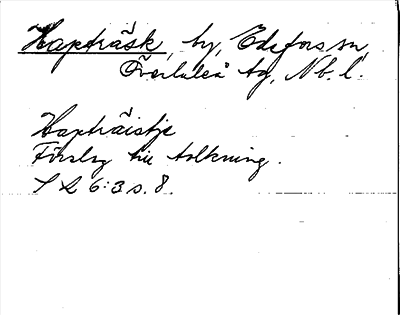 Hapträsk, by, Edefors sn,
Överluleå tg, Nb. l.
Hapträistje
Förslag till tolkning.
S L 6:3 s. 8.